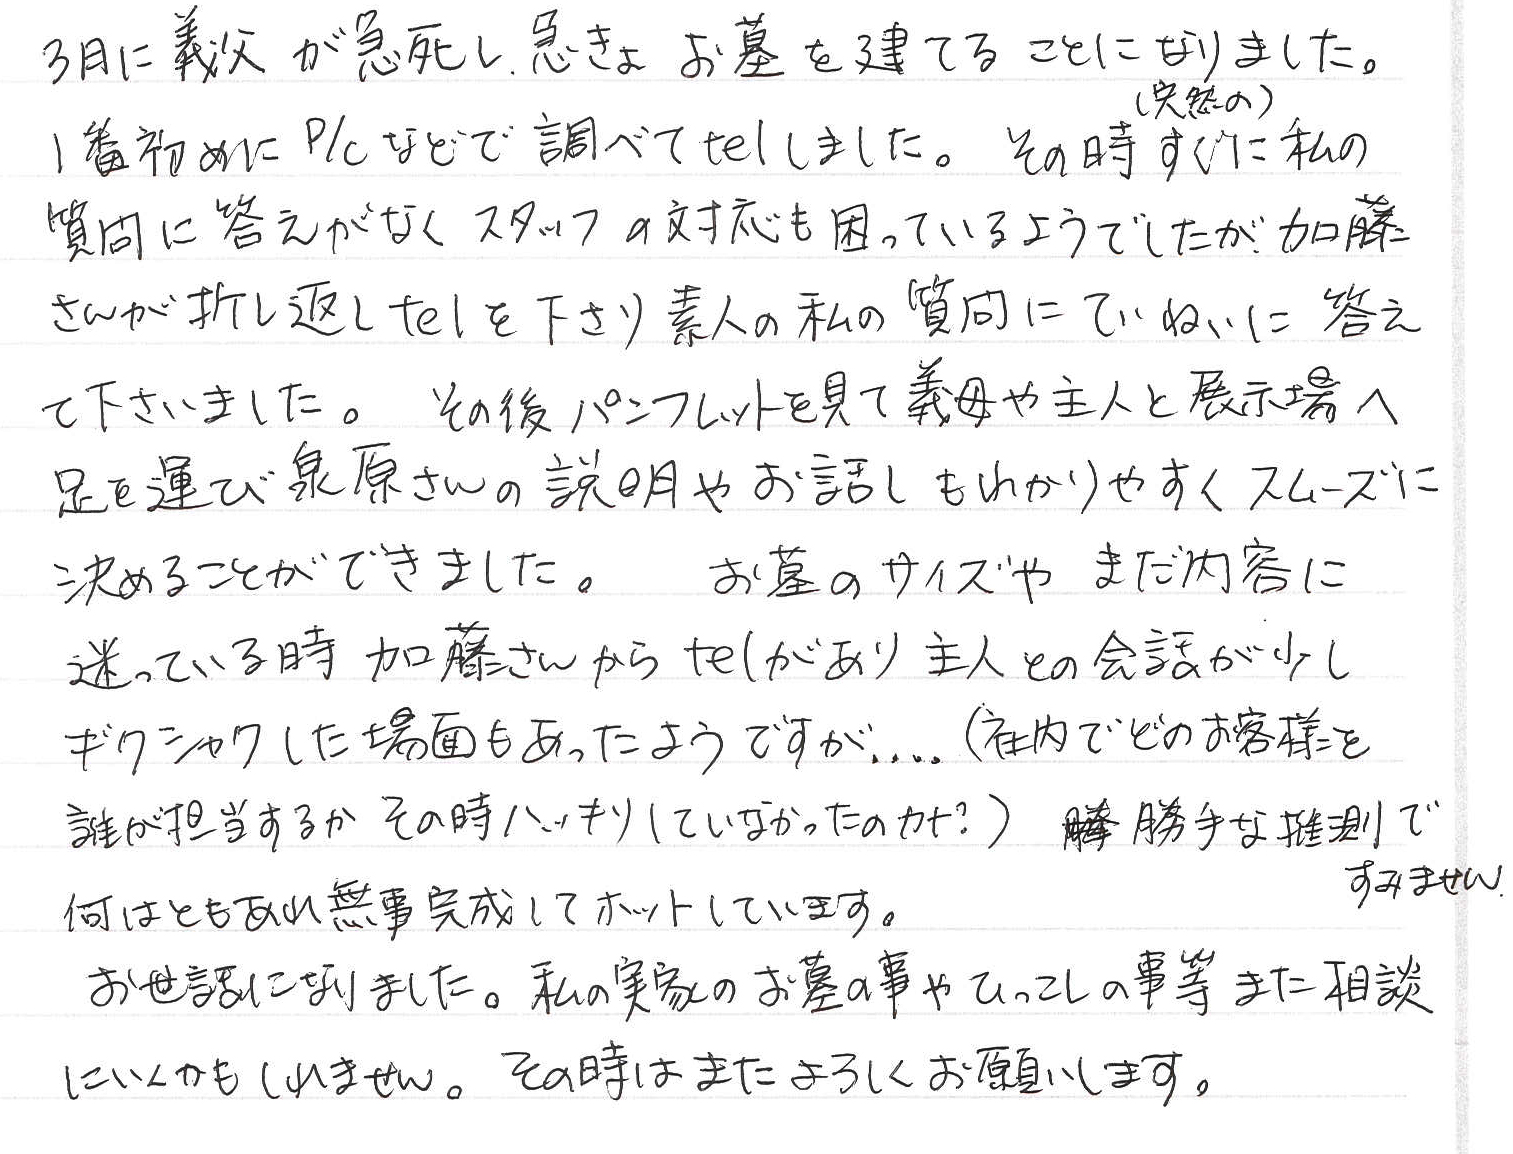 3月に義父が急死し、急きょお墓を建てることになりました。
(突然の)
1番初めにP/Cなどで調べてtelしました。その時すぐに私の
質問に答えがなくスタッフの対応も困っているようでしたが、加藤
さんが折し返しtelを下さり素人の私の質問にていねいに答え
て下さいました。その後パンフレットを見て義母や主人と展示場へ
足を運び泉原さんの説明やお話しもわかりやすくスムーズに
決めることができました。お墓のサイズやまだ内容に
迷っている時加藤さんからtelがあり主人との会話が少し
ギクシャクした場面もあったようですが....(社内でどのお客様を
誰が担当するかその時ハッキリしていなかったのカナ?)勝手な推測で
すみません.
何はともあれ無事完成してホットしています。
お世話になりました。私の実家のお墓の事やひっこしの事等また相談
にいくかもしれません。その時はまたよろしくお願いします。